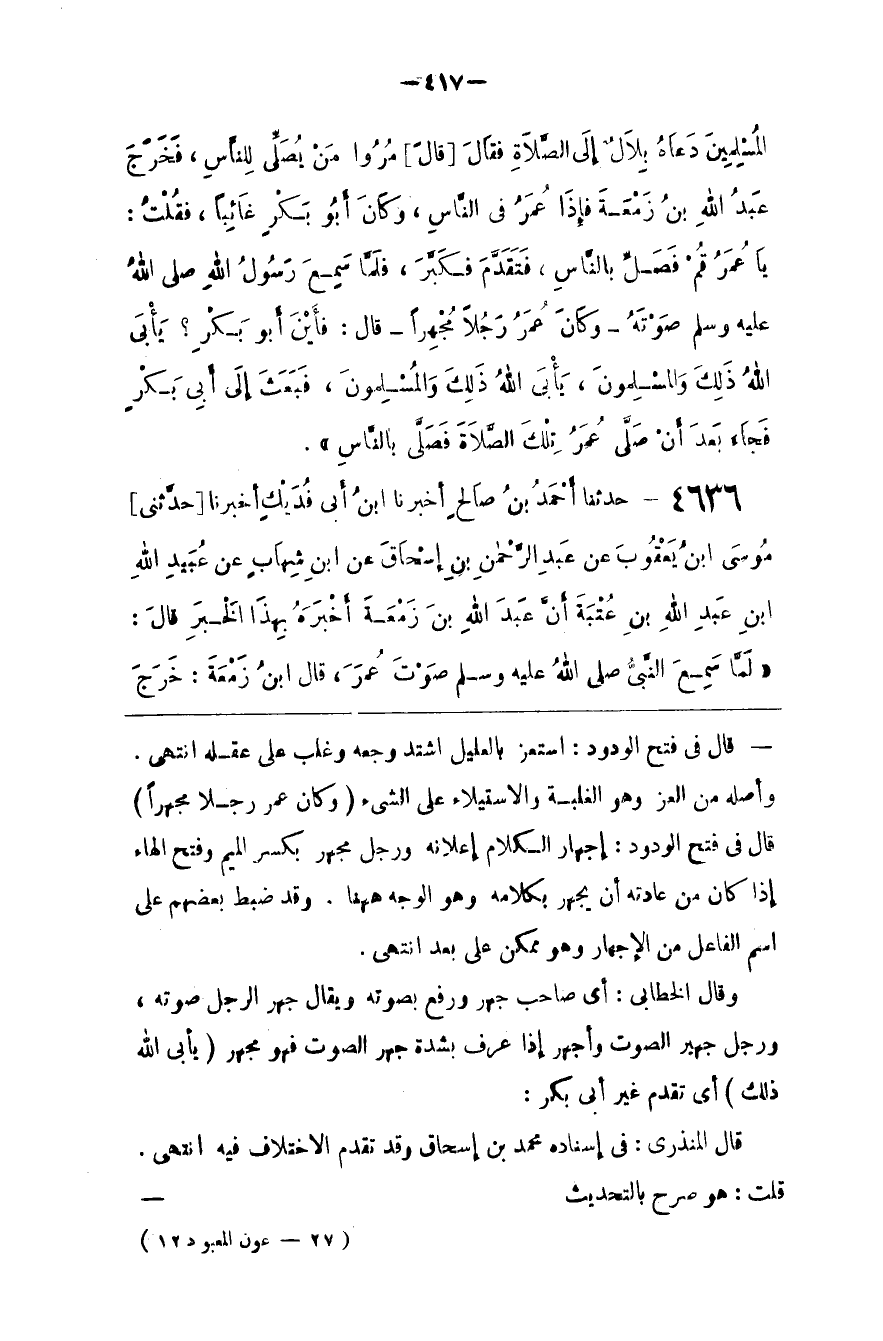 —٤١٧—
المُسْلِمِينَ دَعَاهُ بِلَالٌ إِلَى الصَّلَاةِ فقَالَ [قالَ] مُرُوا مَنْ يُصَلِّى لِلنَّاسِ ، فَخَرَجَ
عَبْدُ اللهِ بنُ زَمْعَةَ فإِذَا عُمَرُ فى النَّاسِ ، وَكَانَ أَبُو بَكْرٍ غَائِباً ، فقُلْتُ :
يَا عُمَرُ قُمْ فَصَلِّ بالنَّاسِ ، فَتَقَدَّمَ فَكَبَّرَ ، فلَمَّا سَمِعَ رَسُولُ اللهِ صلى اللهُ
عليه وسلم صَوْتَهُ ـ وكَانَ عُمَرُ رَجُلاً مُجْهِراً ـ قال : فأَيْنَ أَبو بَكْرٍ ؟ يَأْبَى
اللهُ ذَلِكَ وَالمسْلِمونَ ، يَأْبَى اللهُ ذَلِكَ وَالمُسْلِمونَ ، فَبَعَثَ إِلَى أَبِي بَكْرٍ
فَجاَء بَعدَ أَنْ صَلَّى عُمَرُ تِلْكَ الصَّلَاةَ فَصَلَّى بالنَّاسِ » .
٤٦٣٦ — حدثنا أَحْمَدُ بنُ صَالحٍ أخبرنا ابنُ أَبى فُدَيْكٍ أخبرنا [حدَّثنى]
مُوسَى ابنُ يَعْقُوبَ عن عَبدِ الرَّحْمٰنِ بنِ إِسْحَاقَ عن ابنِ شِهَابٍ عن عُبَيدِ اللهِ
ابنِ عَبدِ اللهِ بنِ عُتْبَةَ أَنَّ عَبدَ اللهِ بنَ زَمْعَةَ أَخْبَرَهُ بِهذَا الْخَبرِ قالَ :
« لَمَّا سَمِعَ النَّبىُّ صلى اللهُ عليه وسلم صَوْتَ عُمَرَ ، قال ابنُ زَمْعَةَ : خَرَجَ
— قال فى فتح الودود : استعز بالعليل اشتد وجعه وغلب على عقله انتهى .
وأصله من العز وهو الغلبة والاستيلاء على الشىء ( وكان عمر رجلا مجهراً )
قال فى فتح الودود : إجهار الكلام إعلانه ورجل مجهر بكسر الميم وفتح الهاء
إذا كان من عادته أن يجهر بكلامه وهو الوجه ههنا . وقد ضبط بعضهم على
اسم الفاعل من الإجهار وهو ممكن على بعد انتهى .
وقال الخطابى : أى صاحب جهر ورفع بصوته ويقال جهر الرجل صوته ،
ورجل جهير الصوت وأجهر إذا عرف بشدة جهر الصوت فهو مجهر ( يأبى الله
ذلك ) أى تقدم غير أبى بكر :
قال المنذرى : فى إسناده محمد بن إسحاق وقد تقدم الاختلاف فيه انتهى .
قلت : هو صرح بالتحديث —
( ٢٧ — عون المعبود ١٢ )